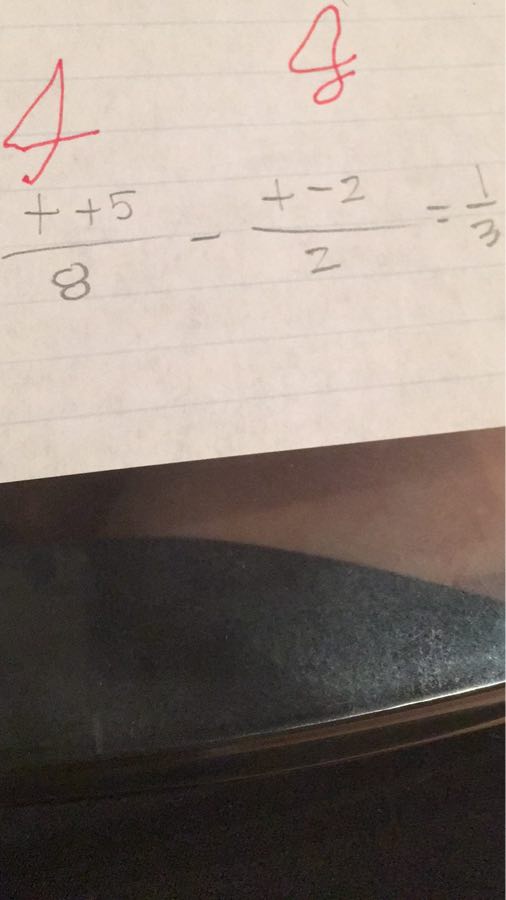 4 8
t+5/8 - t-2/2 = 1/3